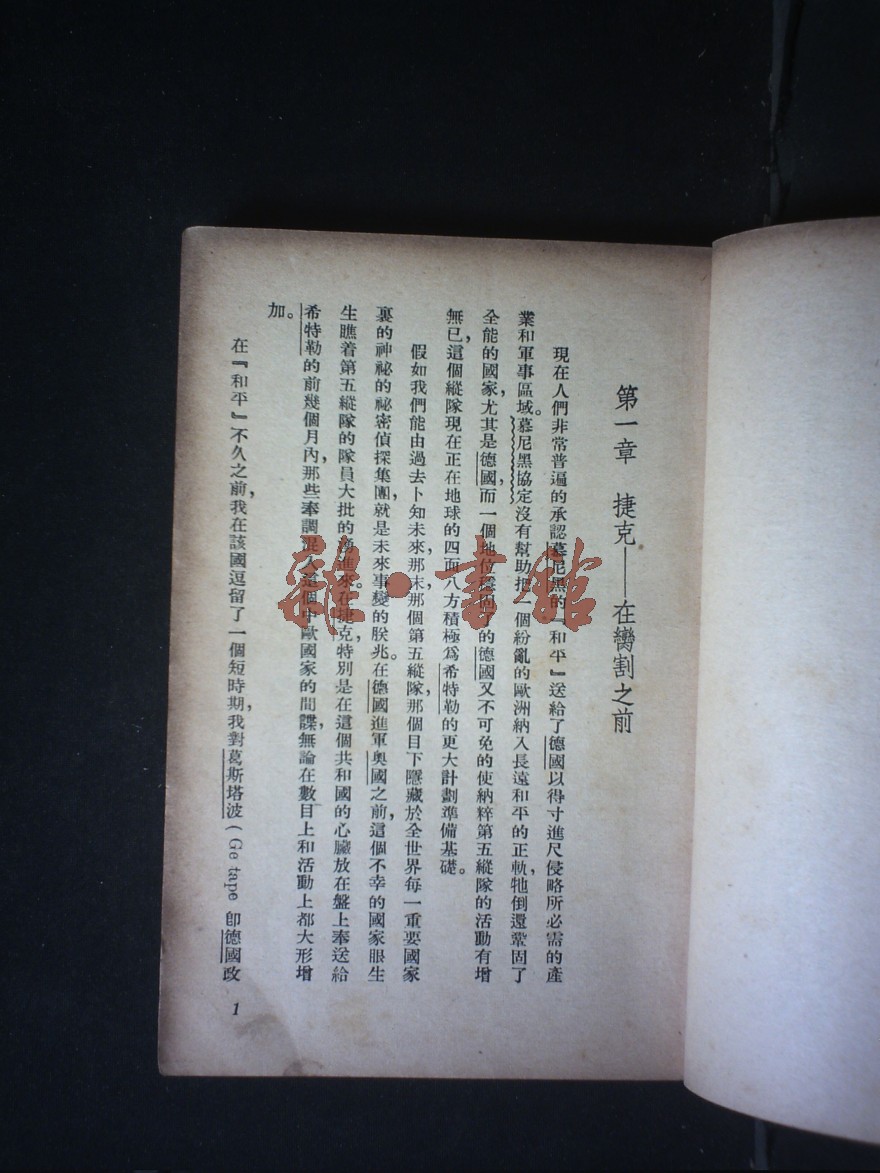 第一章　捷克——在臠割之前
現在人們非常普遍的承認慕尼黑的『和平』送給了德國以得寸進尺侵略所必需的產
業和軍事區域。慕尼黑協定沒有幫助把一個紛亂的歐洲納入長遠和平的正軌，牠倒還鞏固了
全能的國家，尤其是德國，而一個地位穩固了的德國又不可免的使納粹第五縱隊的活動有增
無已，這個縱隊現在正在地球的四面八方積極爲希特勒的更大計劃準備基礎。
假如我們能由過去卜知未來，那末，那個第五縱隊，那個目下隱藏於全世界每一重要國家
裏的神祕的祕密偵探集團，就是未來事變的朕兆。在德國進軍奧國之前，這個不幸的國家眼生
生瞧着第五縱隊的隊員大批的湧進來。在捷克，特別是在這個共和國的心臟放在盤上奉送給
希特勒的前幾個月內，那些奉調混入這個中歐國家的間諜，無論在數目上和活動上都大形增
加。
在『和平』不久之前，我在該國逗留了一個短時期，我對葛斯塔波（Ge tape 卽德國政
1
雜·書館